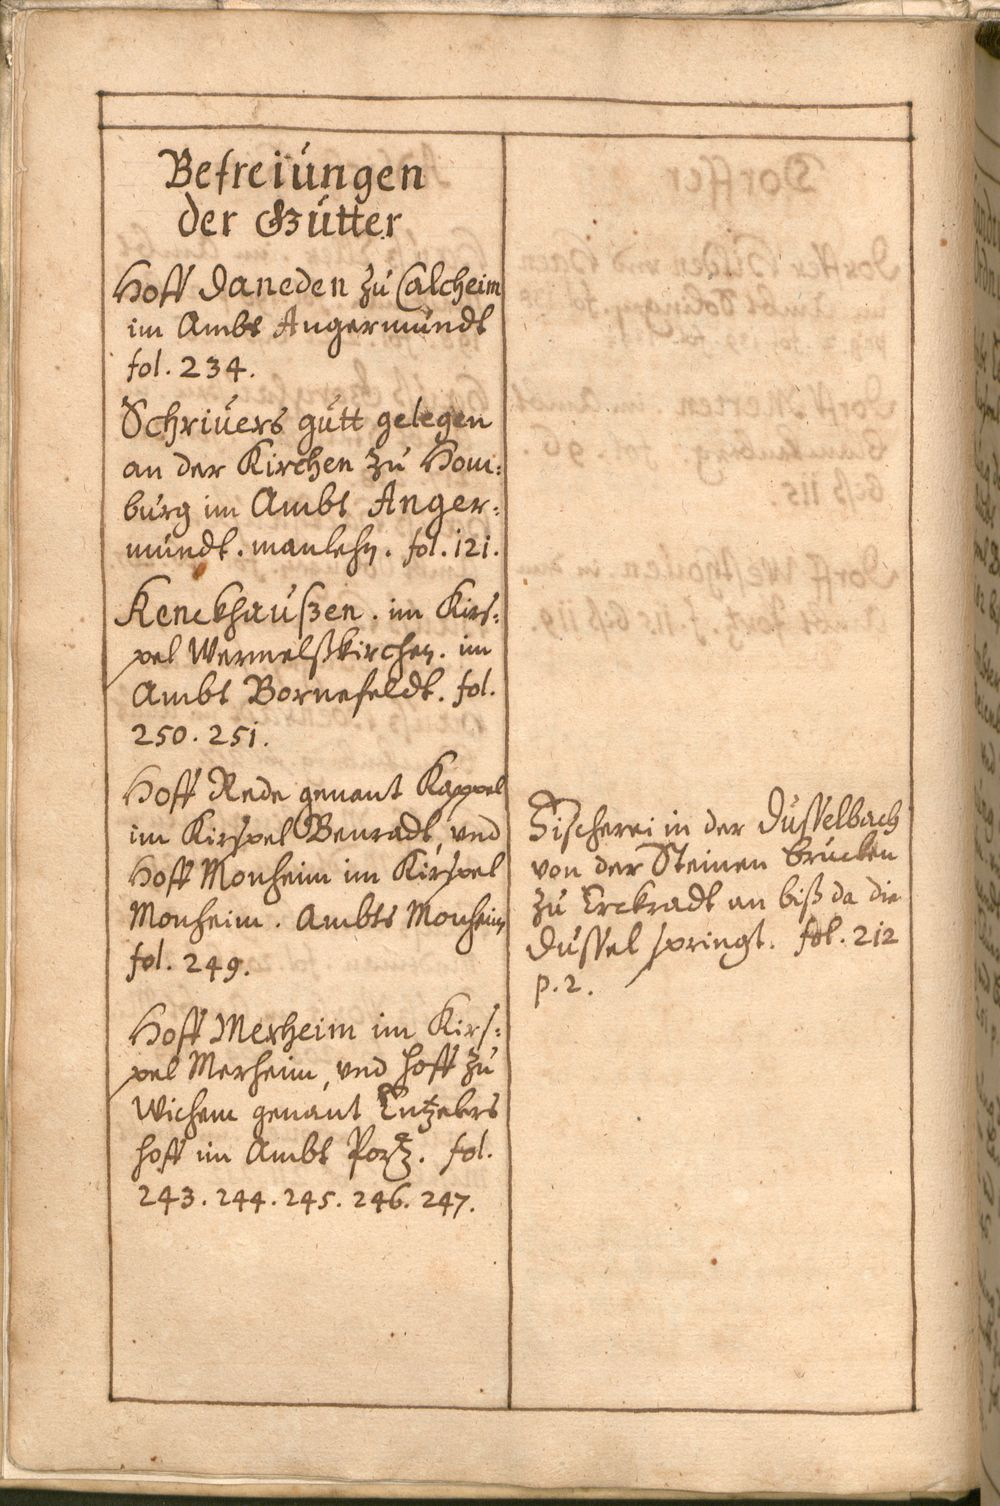 Befreiungen
der Gütter
Hoff Daneden zu Calcheim
im Ambt Angermundt
fol. 234.
Schriuers gutt gelegen
an der Kirchen zu Hom:
burg im Ambt Anger:
mundt. manlehn. fol. 121.
Kenckhaußen. im Kirs:
pel Wermelßkirchen. im
Ambt Bornefeldt. fol.
250. 251.
Hoff Rede genant Kappel
im Kirspel Benradt, vnd
Hoff Monheim im Kirspel
Monheim. Ambts Monheim
fol. 249.
Hoff Merheim im Kirs:
pel Merheim, vnd hoff zu
Wichem genant
hoff im Ambt Portz. fol.
243. 244. 245. 246. 247.
Fischerei in der Dusselbach
von der Steinen brucken
zu Erckradt an biß da die
Dussel springt. fol. 212
p. 2.